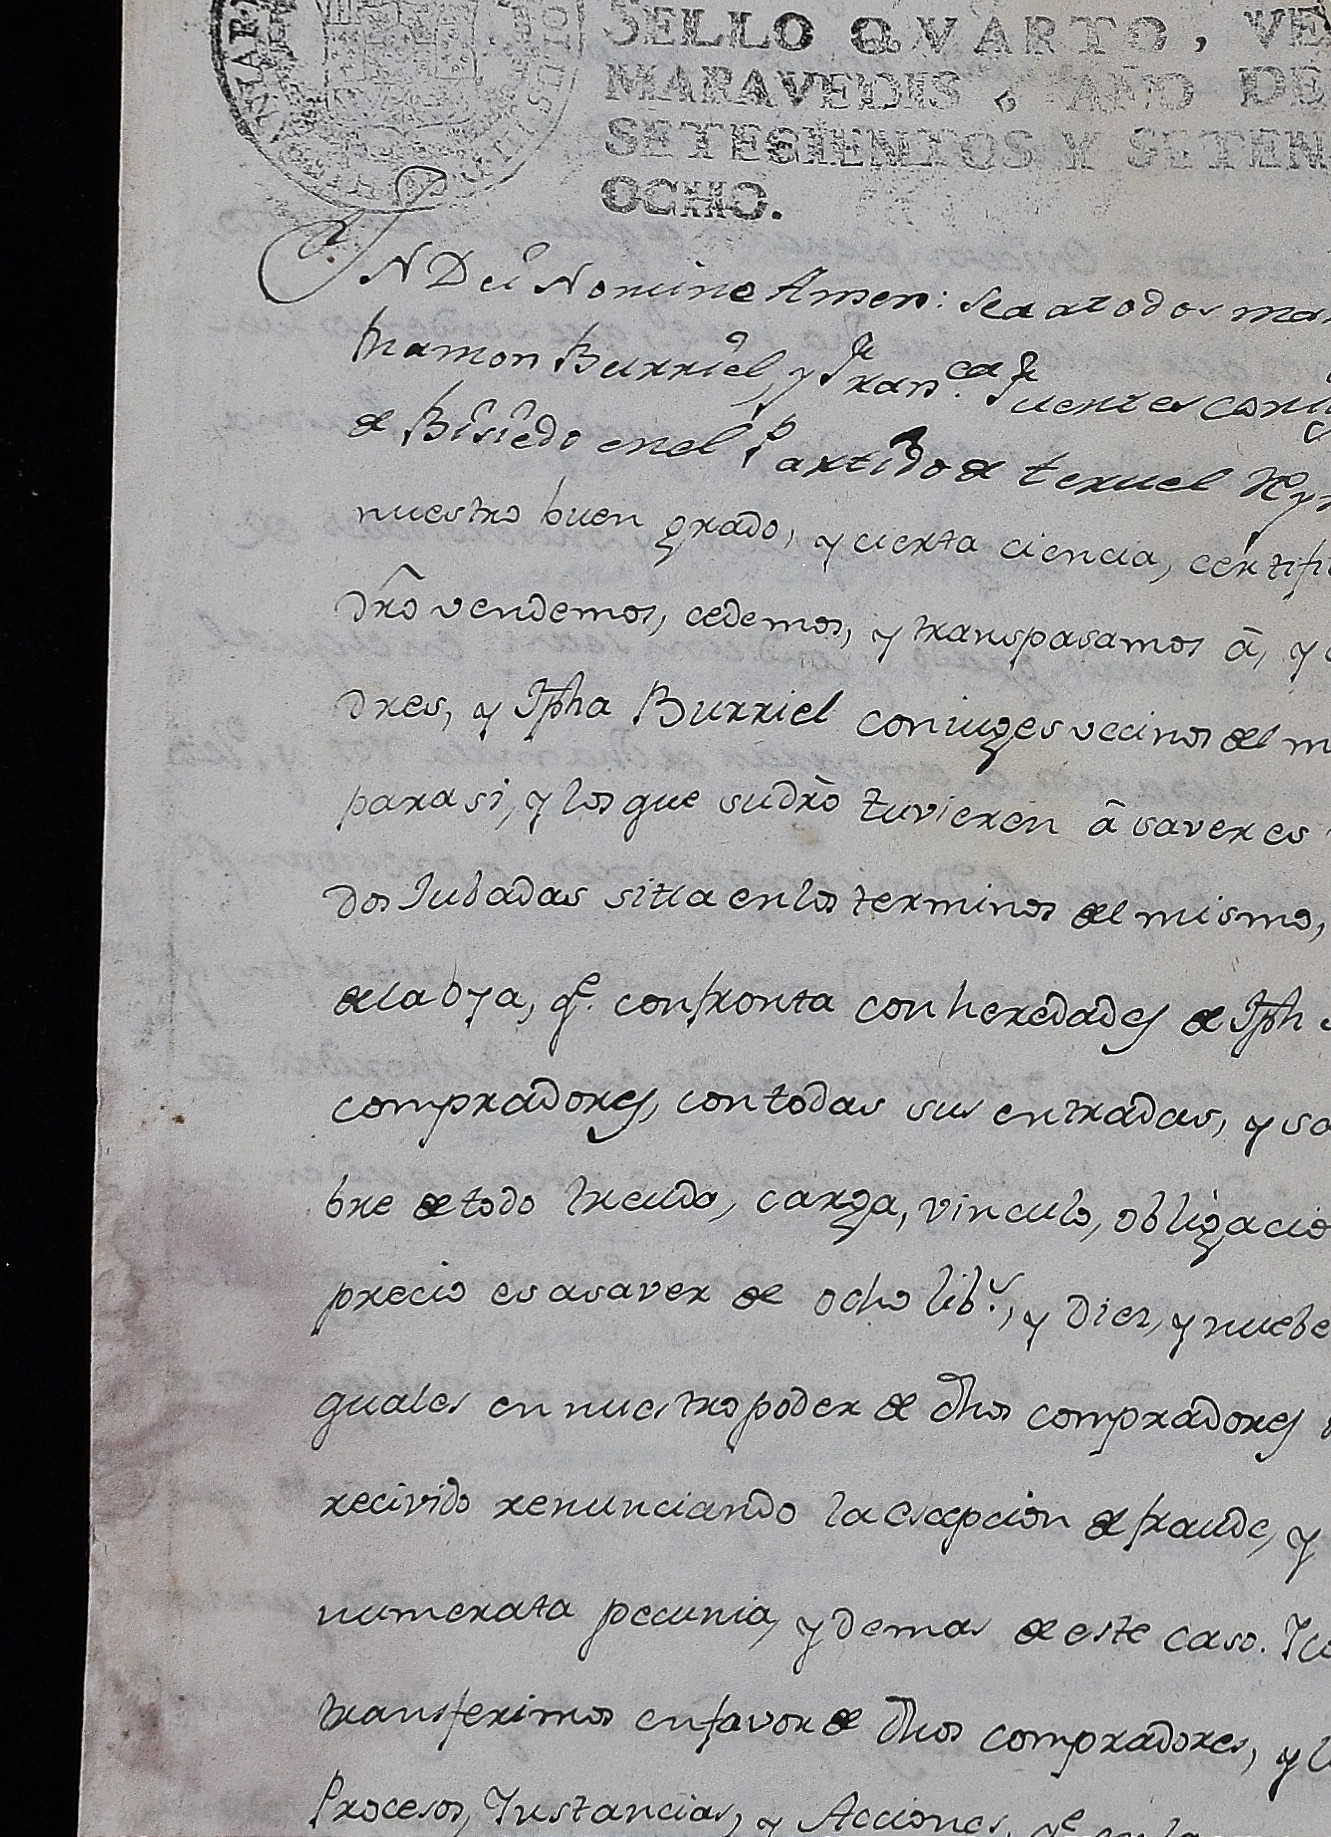 SELLO QVARTO, VE
MARAVEDIS, AÑO DE
SETECIENTOS Y SETEN
OCHO.
IN Dei Nomine Amen: sea atodos ma
Ramon Burriel, y Fran.ca Fuentes coniu
de Bisiedo enel Partido de teruel Rey
nuestro buen grado, y cierta ciencia, certifi
drõ vendemos, cedemos, y transpasamos â, y
dres, y Jpha Burriel coniuges vecinos del m
para si, y los que sudrõ tuvieren â saver es
dos Iubadas sitia enlos terminos del mismo,
dela oya, q.e confronta con heredades de Jph
compradores, con todas sus entradas, y sa
bre detodo treudo, carga, vinculo, obligacio
precio es asaver de ocho lib.s, y diez, y nuebe
quales en nuestro poder de dhos compradores
recivido renunciando la escepcion de fraude, y
numerata pecunia, y demas de este caso. Y
transferimos enfavor de dhos compradores, y
Procesos, Instancias, y Acciones, q.e